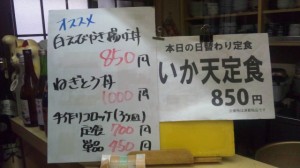 オススメ
白えびかき揚げ丼
850円
ねぎとろ丼
1000円
手作りコロッケ(3個)
定食 700円
単品 450円
本日の日替わり定食
いか天定食
850円